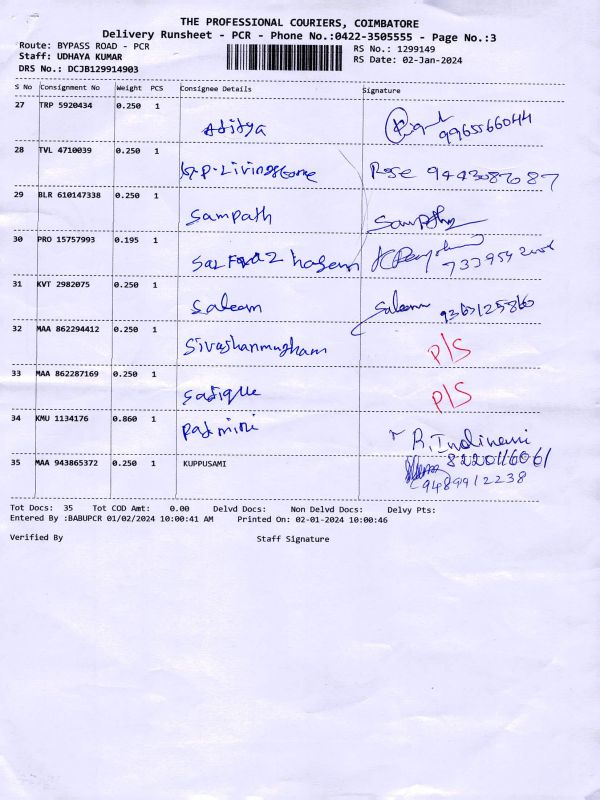 THE PROFESSIONAL COURIERS, COIMBATORE
Delivery Runsheet - PCR - Phone No.:0422-3505555 - Page No.:3
Route: BYPASS ROAD - PCR RS No.: 1299149
Staff: UDHAYA KUMAR RS Date: 02-Jan-2024
DRS No.: DCJB129914903
S No Consignment No Weight PCS Consignee Details Signature
27 TRP 5920434 0.250 1
Aditya 9965566044
28 TVL 4710039 0.250 1
Rose 9443087087
29 BLR 610147338 0.250 1
Sampath Sampath
30 PRO 15757993 0.195 1
31 KVT 2982075 0.250 1
Saleem Saleem
32 MAA 862294412 0.250 1
Sivashanmugham P/S
33 MAA 862287169 0.250 1
Sadique P/S
34 KMU 1134176 0.860 1
Padmini R. Indirani
8220116061
35 MAA 943865372 0.250 1 KUPPUSAMI
9489912238
Tot Docs: 35 Tot COD Amt: 0.00 Delvd Docs: Non Delvd Docs: Delvy Pts:
Entered By :BABUPCR 01/02/2024 10:00:41 AM Printed On: 02-01-2024 10:00:46
Verified By Staff Signature